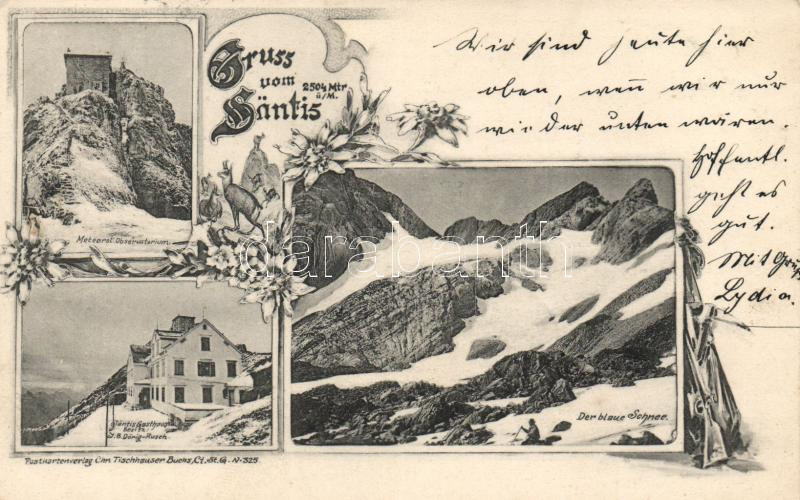 Gruss
vom
Säntis
2504 Mtr
ü/M.
Meteorol. Observatorium.
Säntis Gasthaus
besitz.
J. B. Dörig-Rusch
Der blaue Schnee.
Postkartenverlag Chr. Tischhauser Buchs, Ct. St. G. N. 325.
Wir sind heute hier
oben, wenn wir nur
wieder unten wären.
Hoffentl.
geht es
gut.
Mit Gruß
Lydia.
darabanth